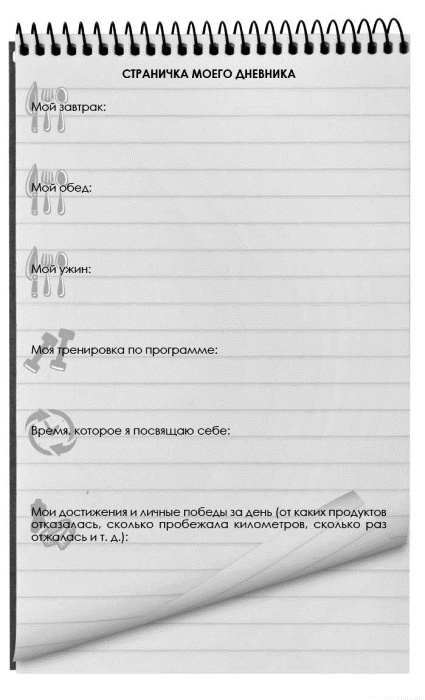 СТРАНИЧКА МОЕГО ДНЕВНИКА
Мой завтрак:
Мой обед:
Мой ужин:
Моя тренировка по программе:
Время, которое я посвящаю себе:
Мои достижения и личные победы за день (от каких продуктов
отказалась, сколько пробежала километров, сколько раз
отжалась и т. д.):